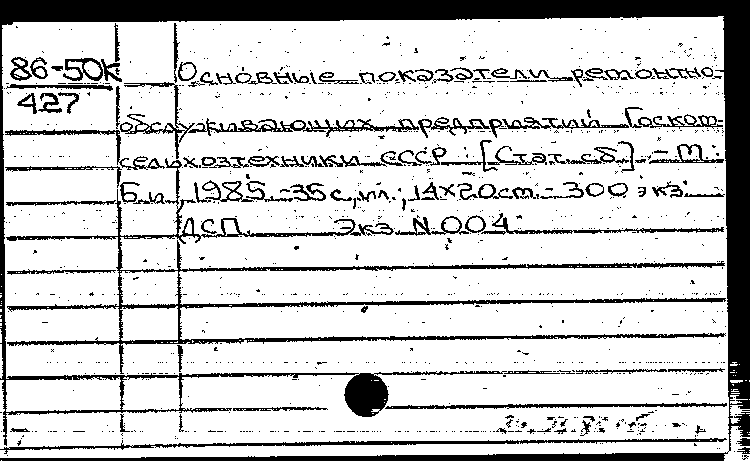 86-50К Основные показатели ремонтно-
427
обслуживающих предприятий Госком-
сельхозтехники СССР : [Стат. сб.]. – М.:
Б.и., 1985. -36 с., ил.; 14×20см. - 300 экз.
ДСП. Экз. N 004.